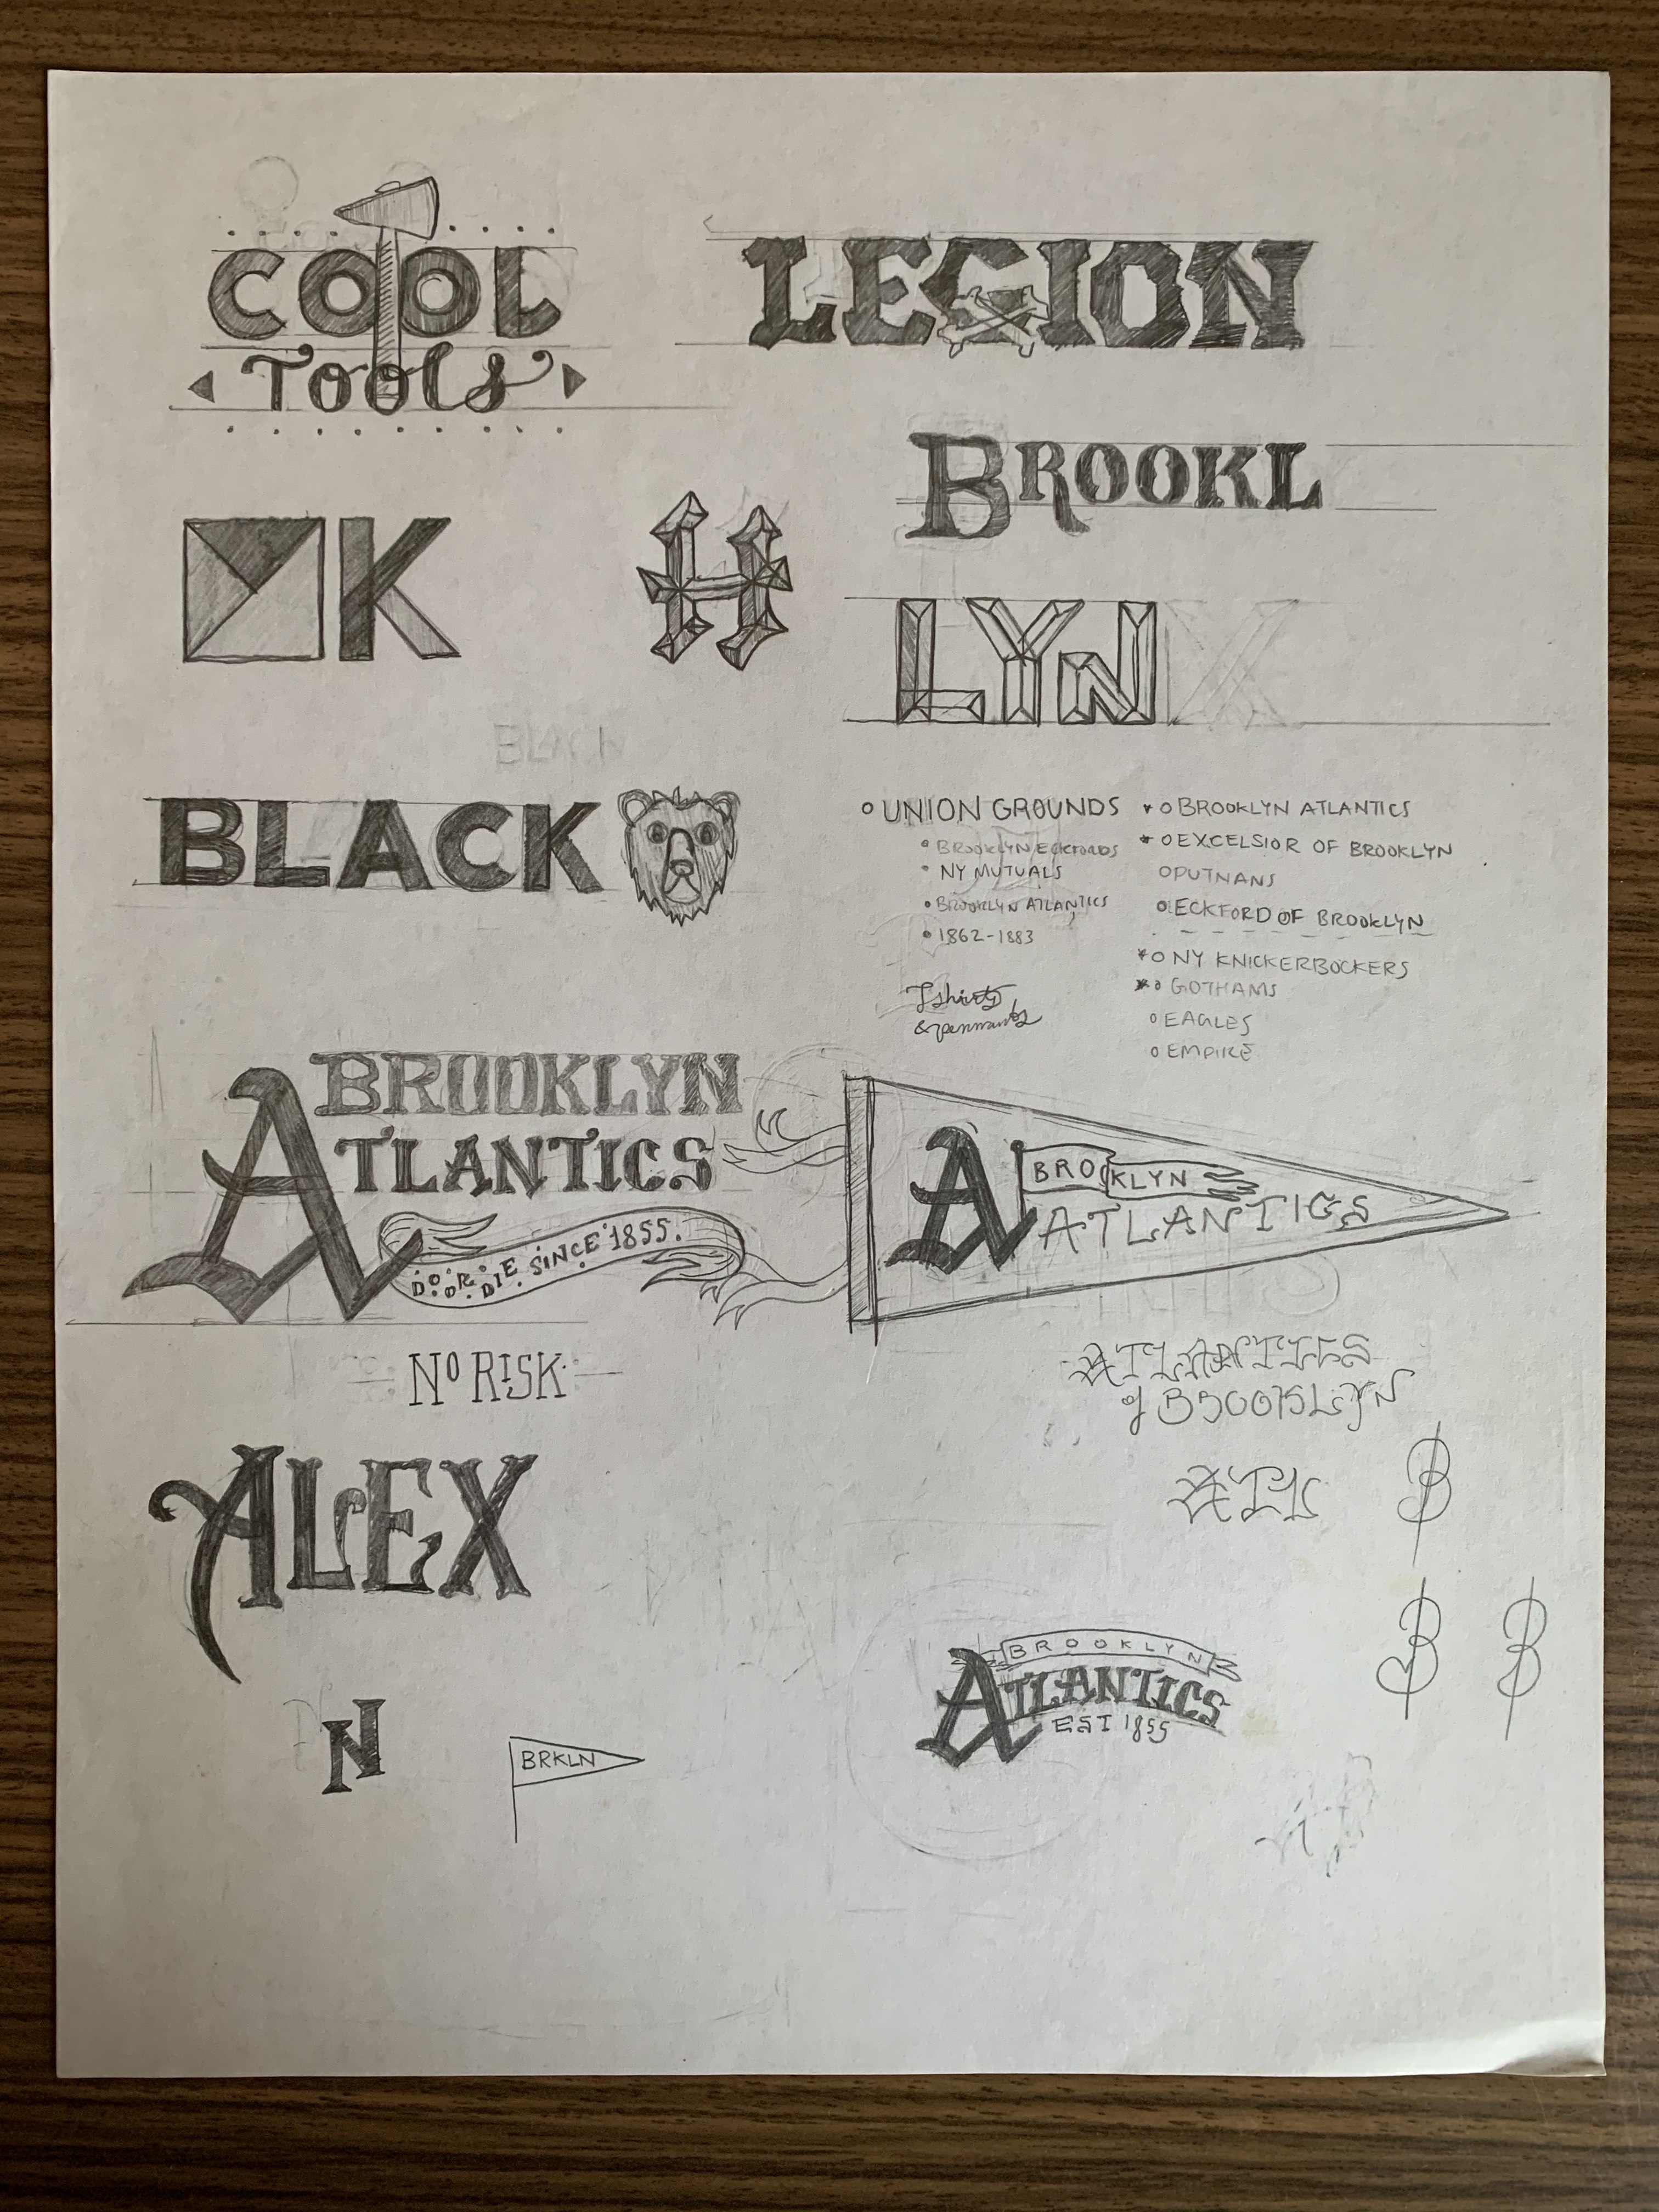 COOL
TOOLS
LEGION
BROOKL
K
H
LYN
BLACK
BLACK
UNION GROUNDS
BROOKLYN ECKFORDS
NY MUTUALS
BROOKLYN ATLANTICS
1862-1883
Tshirts
& pennants
* BROOKLYN ATLANTICS
* EXCELSIOR OF BROOKLYN
PUTNANS
ECKFORD OF BROOKLYN
* NY KNICKERBOCKERS
* GOTHAMS
EAGLES
EMPIRE
BROOKLYN
ATLANTICS
DO OR DIE SINCE 1855.
A BROOKLYN
ATLANTICS
NO RISK
ATLANTICS
of BROOKLYN
ALEX
ATL
B
B B
BROOKLYN
ATLANTICS
EST 1855
N
BRKLN